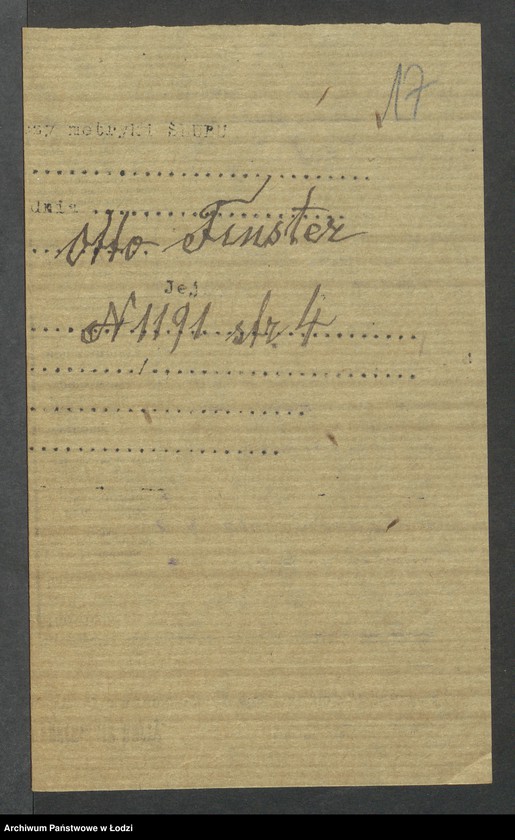 17
zy metryki ŚLUBU
dnia
Otto Finster
Jej
N 1191 str 4
Archiwum Państwowe w Łodzi